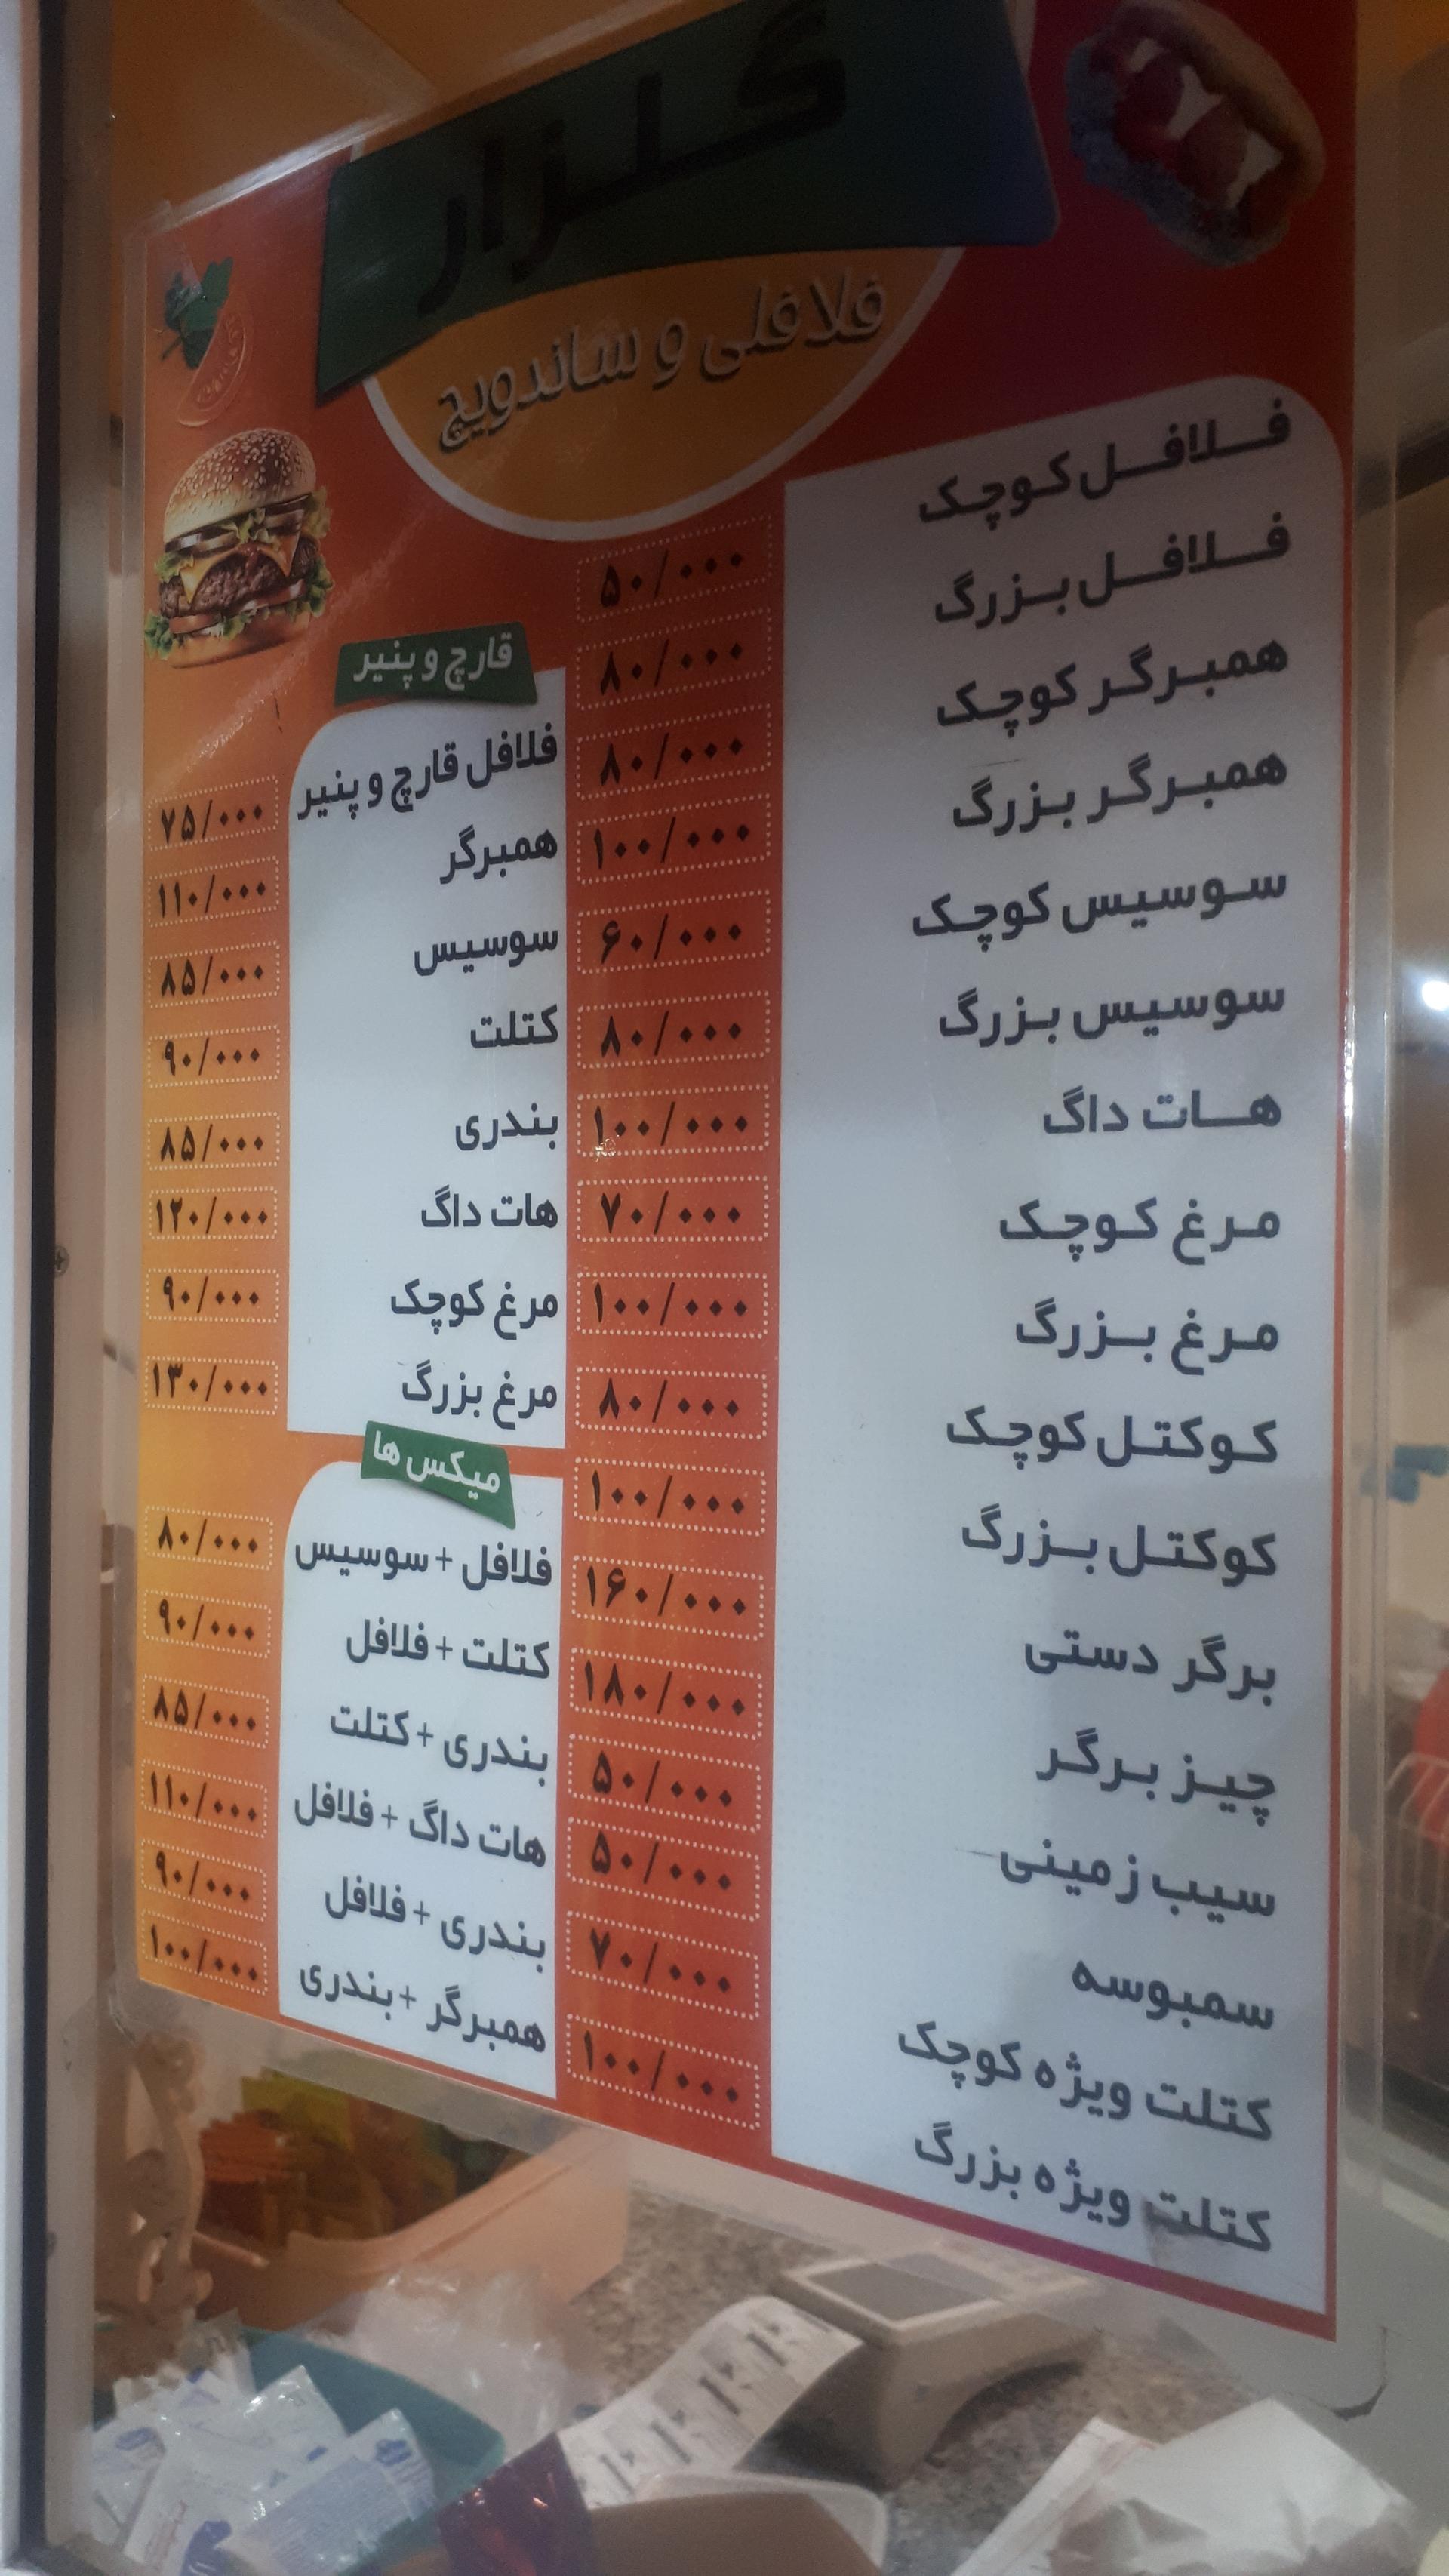 گلزار
فلافلی و ساندویچ
فلافل کوچک ۵۰/۰۰۰
فلافل بزرگ ۸۰/۰۰۰
همبرگر کوچک ۸۰/۰۰۰
همبرگر بزرگ ۱۰۰/۰۰۰
سوسیس کوچک ۶۰/۰۰۰
سوسیس بزرگ ۸۰/۰۰۰
هات داگ ۱۰۰/۰۰۰
مرغ کوچک ۷۰/۰۰۰
مرغ بزرگ ۱۰۰/۰۰۰
کوکتل کوچک ۸۰/۰۰۰
کوکتل بزرگ ۱۰۰/۰۰۰
برگر دستی ۱۶۰/۰۰۰
چیز برگر ۱۸۰/۰۰۰
سیب زمینی ۵۰/۰۰۰
سمبوسه ۵۰/۰۰۰
کتلت ویژه کوچک ۷۰/۰۰۰
کتلت ویژه بزرگ ۱۰۰/۰۰۰
قارچ و پنیر
فلافل قارچ و پنیر ۷۵/۰۰۰
همبرگر ۱۱۰/۰۰۰
سوسیس ۸۵/۰۰۰
کتلت ۹۰/۰۰۰
بندری ۸۵/۰۰۰
هات داگ ۱۲۰/۰۰۰
مرغ کوچک ۹۰/۰۰۰
مرغ بزرگ ۱۳۰/۰۰۰
میکس ها
فلافل + سوسیس ۸۰/۰۰۰
کتلت + فلافل ۹۰/۰۰۰
بندری + کتلت ۸۵/۰۰۰
هات داگ + فلافل ۱۱۰/۰۰۰
بندری + فلافل ۹۰/۰۰۰
همبرگر + بندری ۱۰۰/۰۰۰